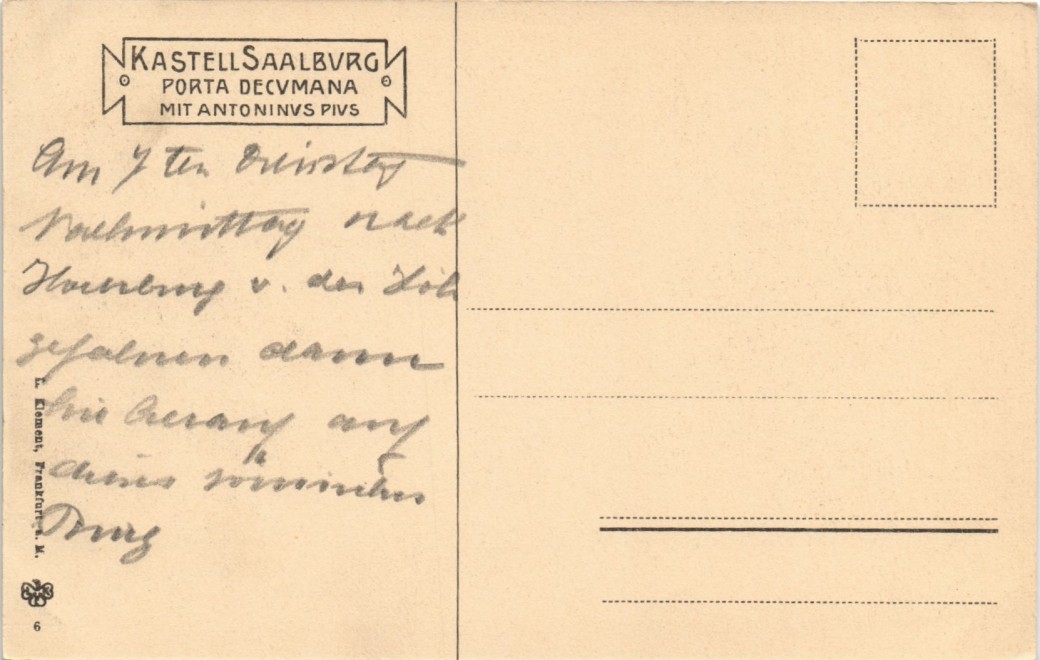 KASTELL SAALBVRG
PORTA DECVMANA
MIT ANTONINVS PIVS
Am 7 ten Dienstag
Nachmittag nach
Homburg v. der Höh
gefahren dann
hier herauf auf
dieses römisches
Burg
L. Klement, Frankfurt a. M.
6